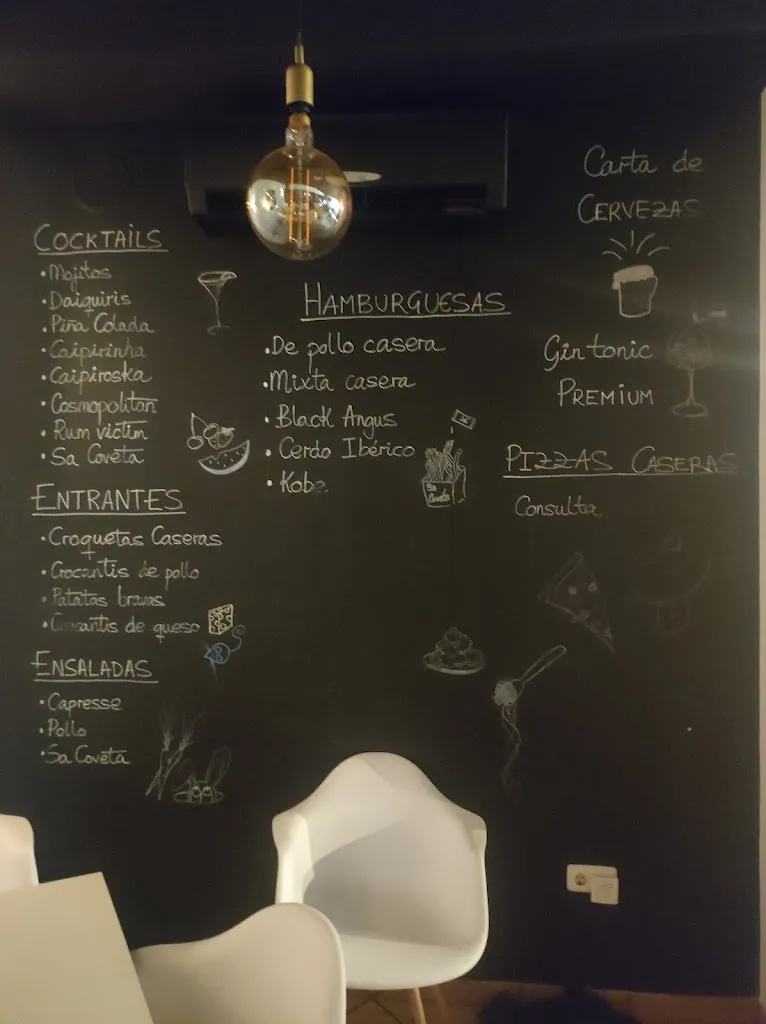 COCKTAILS
• Mojitos
• Daiquiris
• Piña Colada
• Caipirinha
• Caipiroska
• Cosmopolitan
• Rum victim
• Sa Coveta
ENTRANTES
• Croquetas Caseras
• Crocantis de pollo
• Patatas bravas
• Crocantis de queso
ENSALADAS
• Capresse
• Pollo
• Sa Coveta
HAMBURGUESAS
• De pollo casera
• Mixta casera
• Black Angus
• Cerdo Ibérico
• Kobe
Sa
Coveta
Carta de
CERVEZAS
Gin tonic
PREMIUM
PIZZAS CASERAS
Consulta